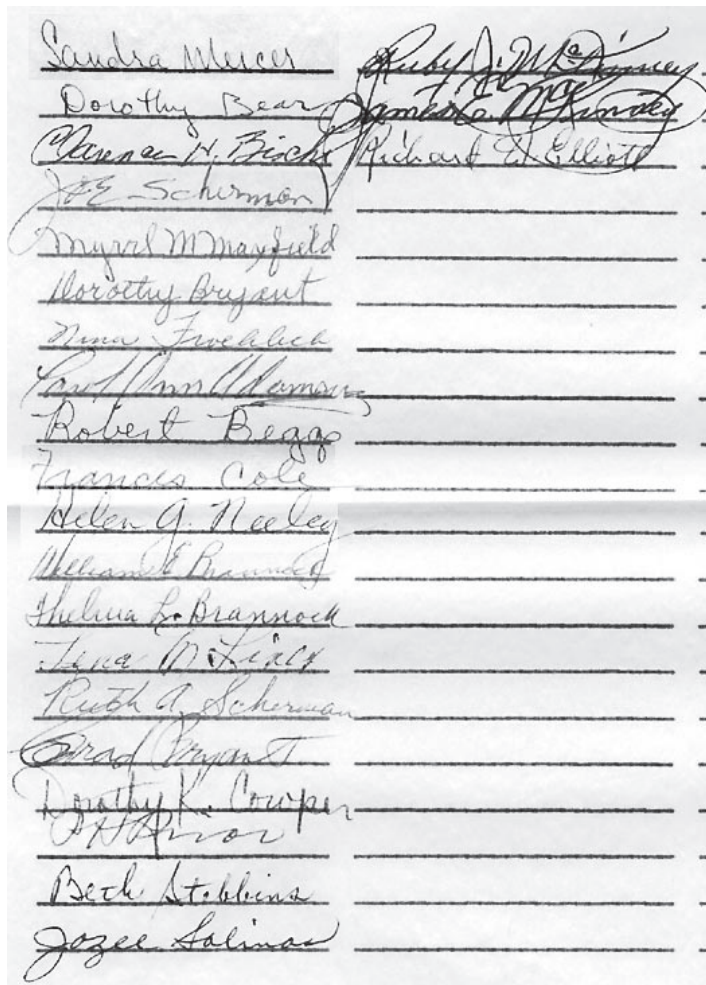 Sandra Mercer
Dorothy Bear
Clarence H.
Joe Scherman
Myrvl M Mayfield
Dorothy Bryant
Nina Froehlich
Carol Ann Adamson
Robert Beggs
Frances Cole
Helen G. Neeley
William E. Brannock
Thelma L. Brannock
Ruth A. Scherman
Brad Bryant
Dorothy K. Cowper
Beth Stebbins
Jozee Salinas
Ruby J. McKinney
James E. McKinney
Richard E. Elliott